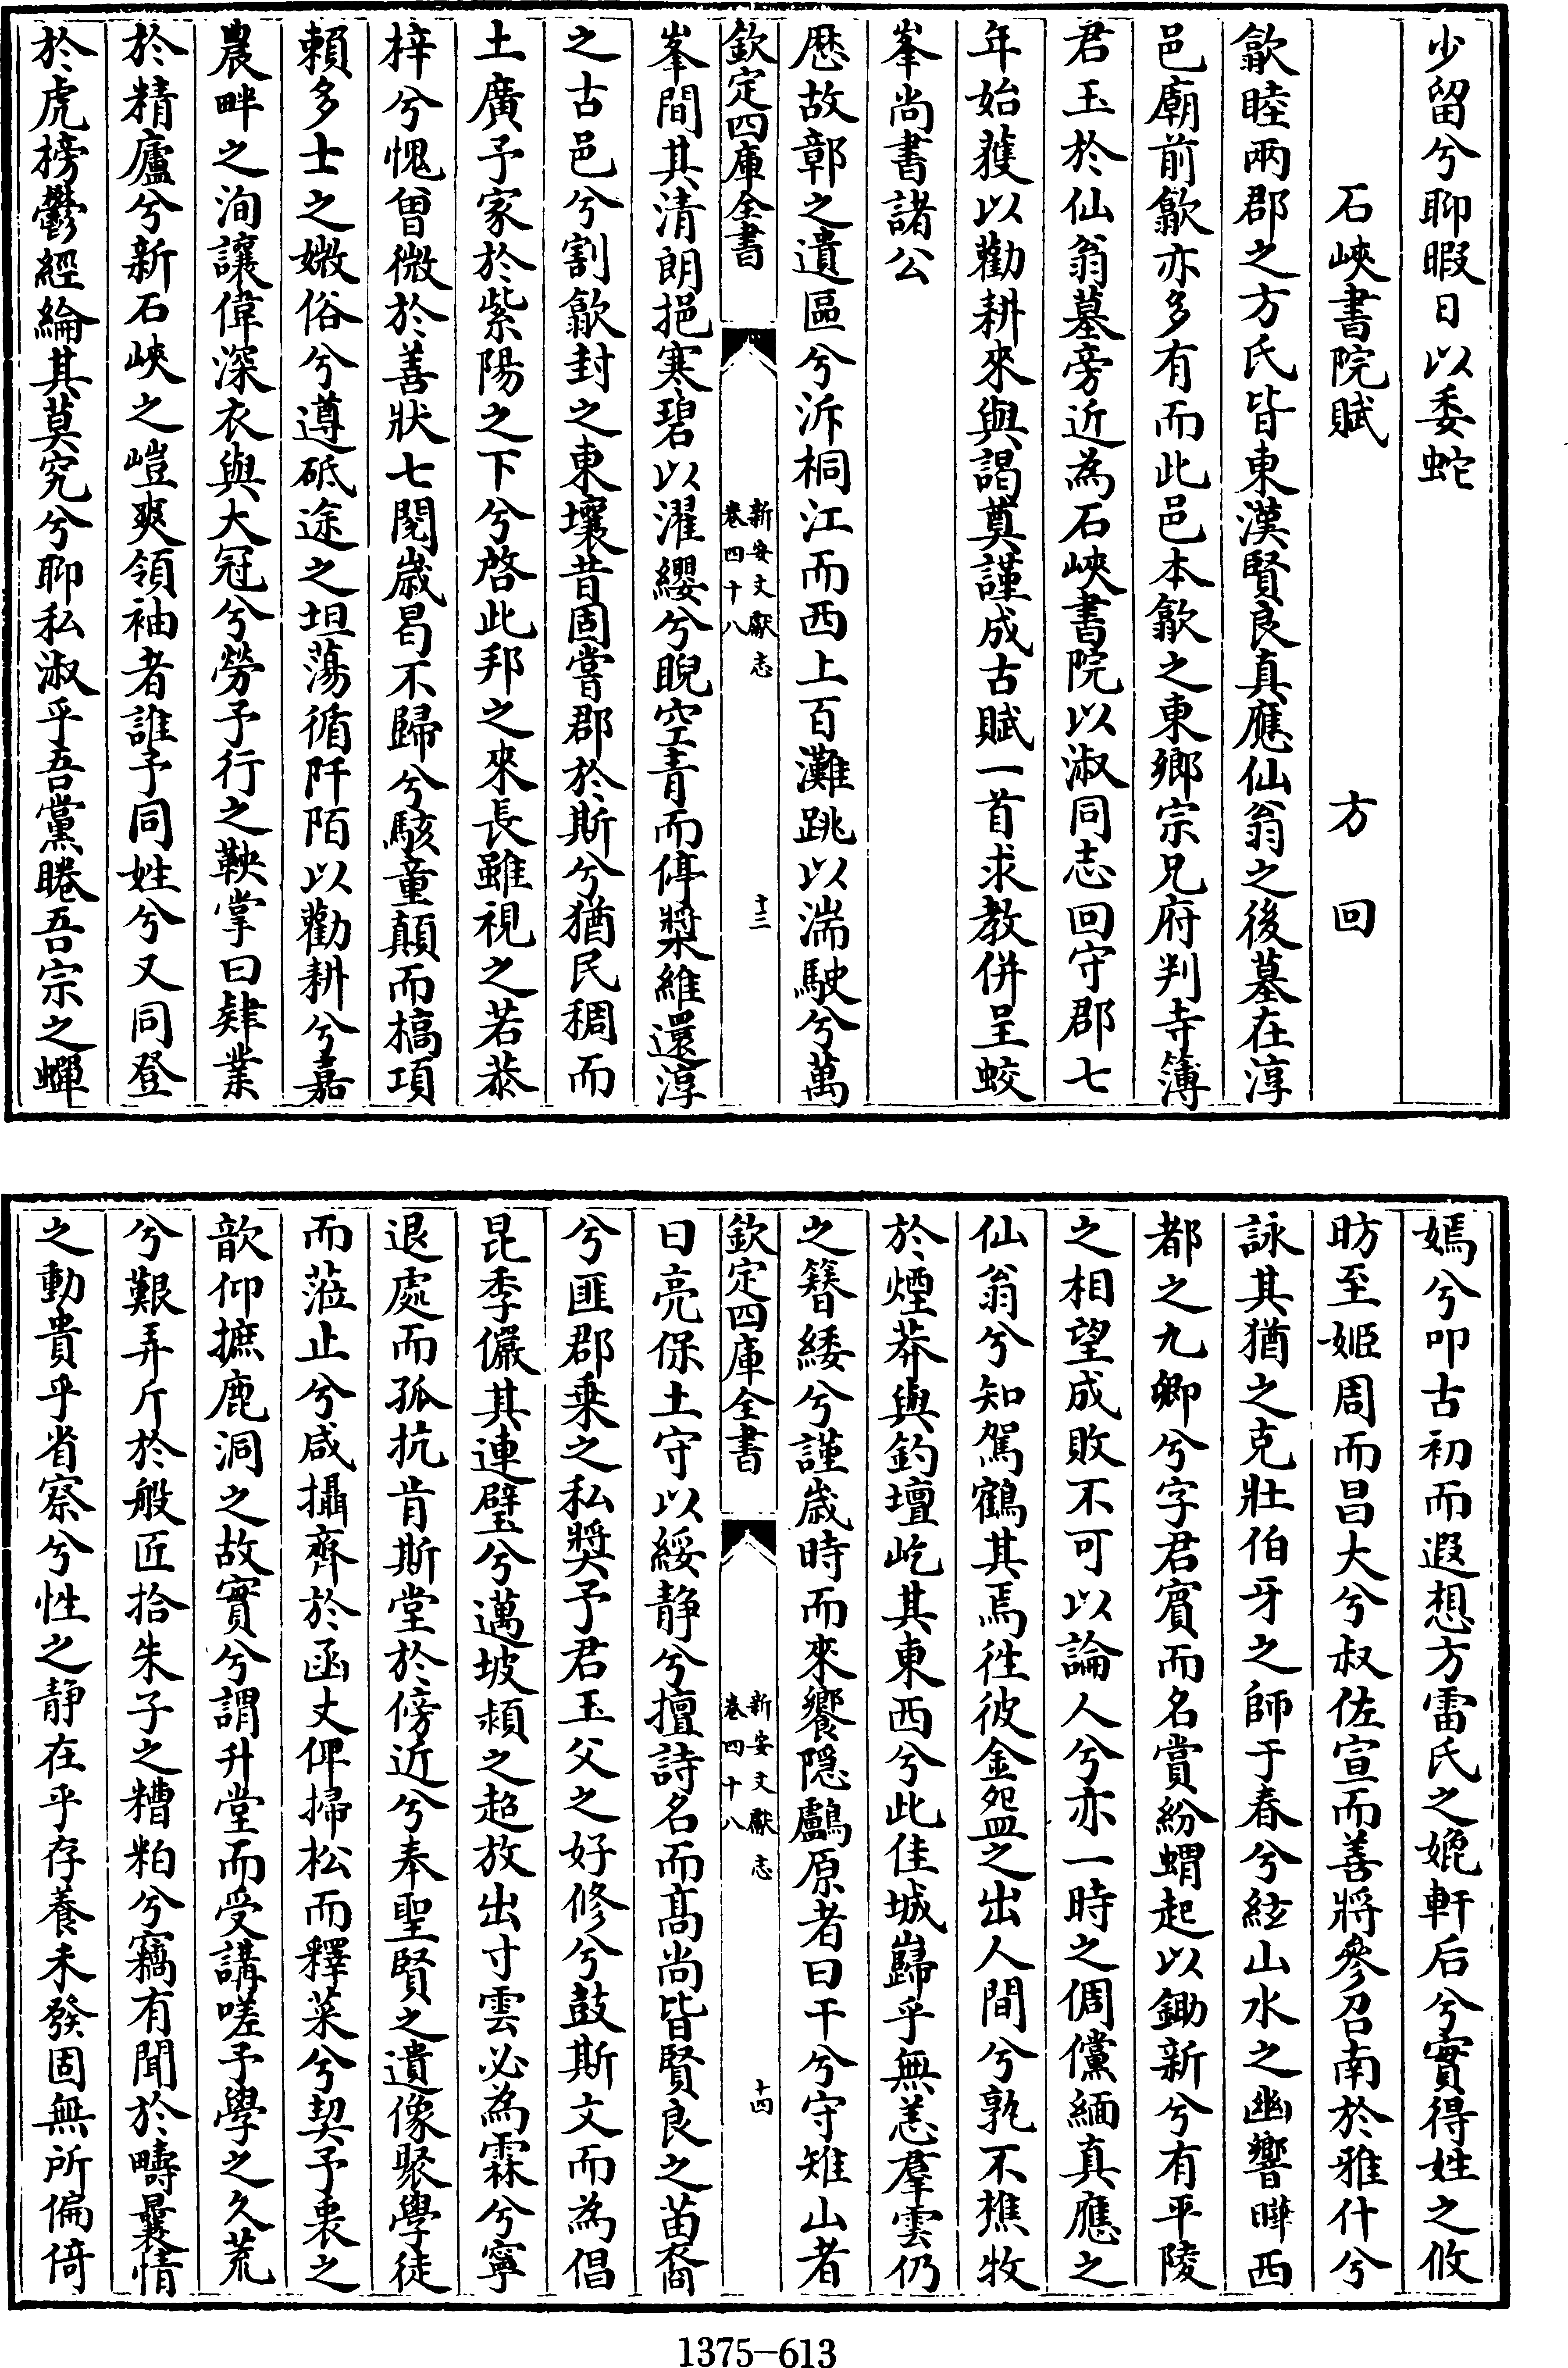 少留兮聊暇日以委蛇
石峽書院賦　方回
歙睦兩郡之方氏皆東漢賢良真應仙翁之後墓在淳
邑廟前歙亦多有而此邑本歙之東鄉宗兄府判寺簿
君玉於仙翁墓旁近為石峽書院以淑同志回守郡七
年始獲以勸耕來與謁奠謹成古賦一首求教併呈蛟
峯尚書諸公
歷故鄣之遺區兮泝桐江而西上百灘跳以湍駛兮萬
欽定四庫全書
新安文獻志
卷四十八
十三
峯間其清朗挹寒碧以濯纓兮睨空青而停槳維還淳
之古邑兮割歙封之東壤昔固嘗郡於斯兮猶民稠而
土廣予家於紫陽之下兮啓此邦之來長雖視之若恭
梓兮愧曾微於善狀七閱歲曷不歸兮駭童顛而槁項
賴多士之媺俗兮遵砥途之坦蕩循阡陌以勸耕兮嘉
農畔之洵讓偉深衣與大冠兮勞予行之鞅掌曰肄業
於精廬兮新石峽之嵦爽領袖者誰予同姓兮又同登
於虎榜鬱經綸其莫究兮聊私淑乎吾黨睠吾宗之蟬
嫣兮叩古初而遐想方雷氏之媲軒后兮實得姓之攸
昉至姬周而昌大兮叔佐宣而善將參召南於雅什兮
詠其猶之克壯伯牙之師于春兮絃山水之幽響曄西
都之九卿兮字君賔而名賞紛蝟起以鋤新兮有平陵
之相望成敗不可以論人兮亦一時之倜儻緬真應之
仙翁兮知駕鶴其焉徃彼金盌之出人間兮孰不樵牧
於煙莽與釣壇屹其東西兮此佳城巋乎無恙羣雲仍
之簪緌兮謹歲時而來饗隠鸕原者曰干兮守雉山者
欽定四庫全書
新安文獻志
卷四十八
十四
曰亮保土守以綏静兮擅詩名而髙尚皆賢良之苗裔
兮匪郡乗之私奬予君玉父之好修兮鼓斯文而為倡
昆季儼其連璧兮邁坡潁之超放出寸雲必為霖兮寧
退處而孤抗肯斯堂於傍近兮奉聖賢之遺像聚學徒
而蒞止兮咸攝齊於函丈俾掃松而釋菜兮契予衷之
歆仰摭鹿洞之故實兮謂升堂而受講嗟予學之久荒
兮艱弄斤於般匠拾朱子之糟粕兮竊有聞於疇曩情
之動貴乎省察兮性之静在乎存養未發固無所偏倚
1375-613